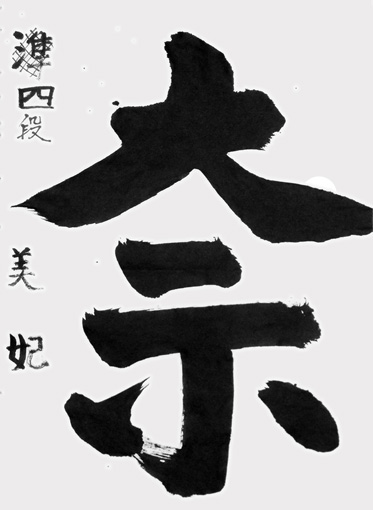 奈
準四段 美妃